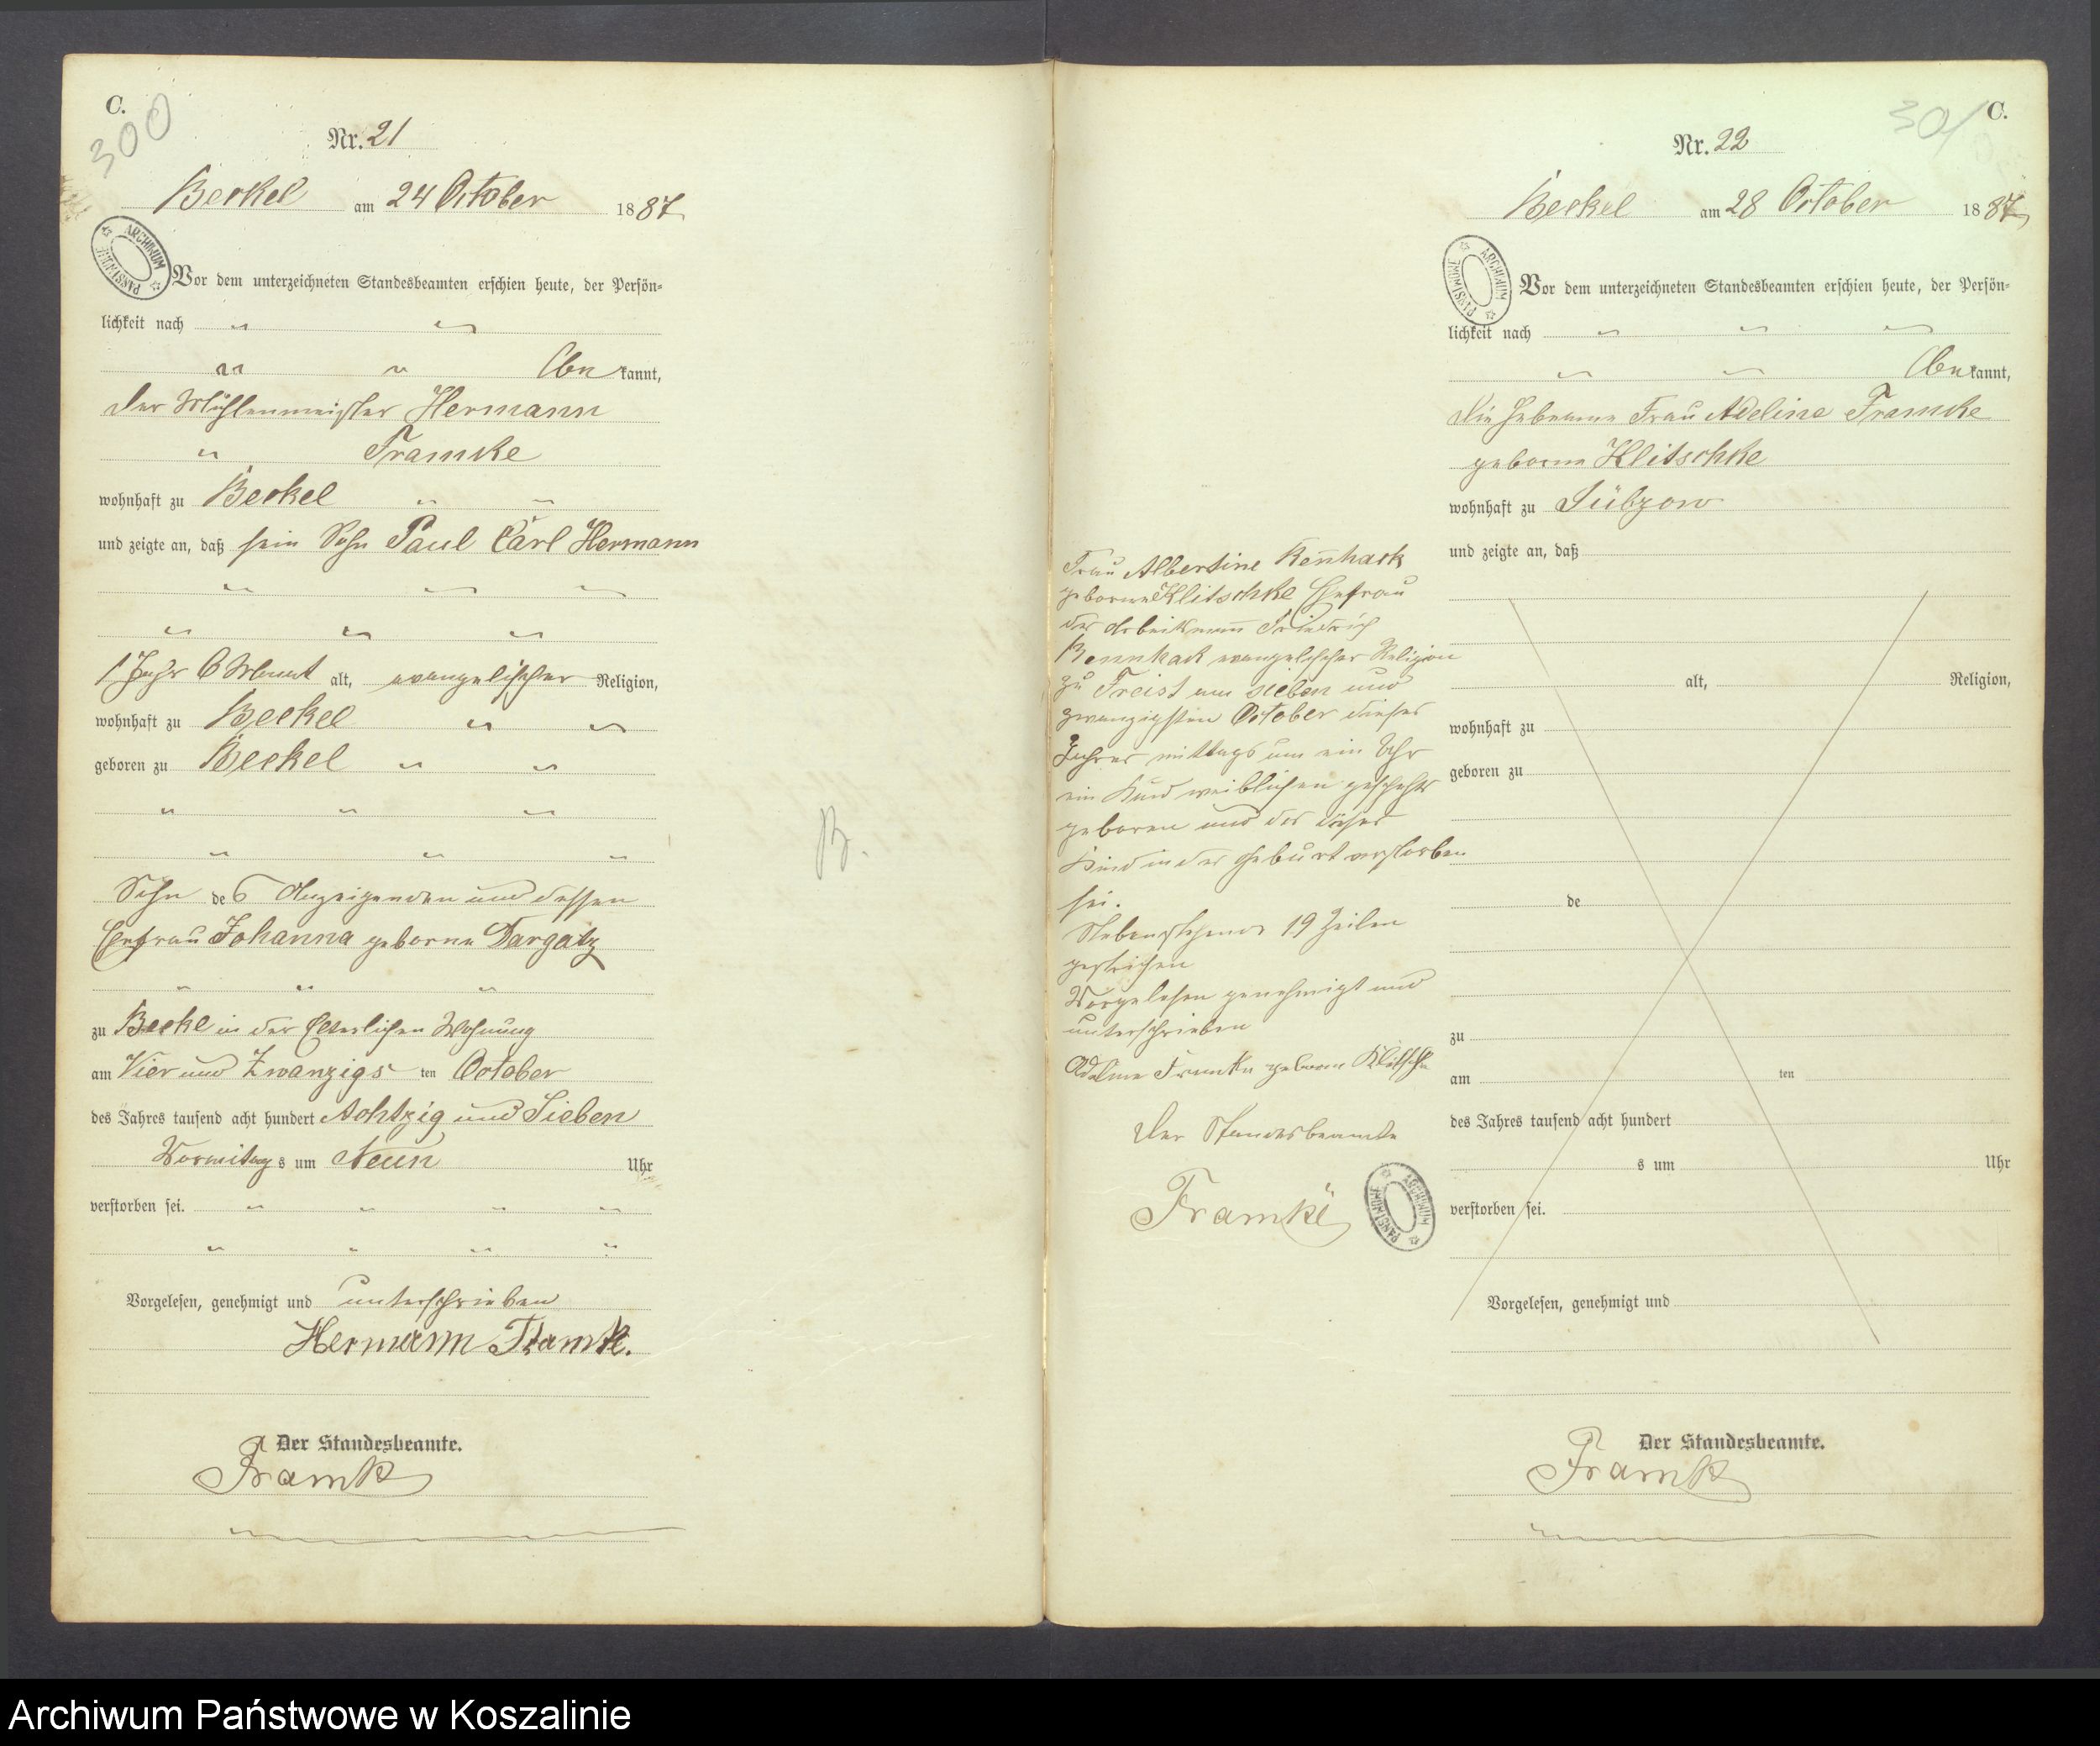 C.
300
Nr. 21
Beckel am 24 October 1887
ARCHIWUM PAŃSTWOWE
Vor dem unterzeichneten Standesbeamten erschien heute, der Persön-
lichkeit nach
be kannt,
der Mühlenmeister Hermann
Framke
wohnhaft zu Beckel
und zeigte an, daß sein Sohn Paul Carl Hermann
1 Jahr 6 Monat alt, evangelischer Religion,
wohnhaft zu Beckel
geboren zu Beckel
Sohn des Anzeigenden und dessen
Ehefrau Johanna geborne Dargatz
zu Beckel in der Elterlichen Wohnung
am Vier und Zwanzigs ten October
des Jahres tausend acht hundert Achtzig und Sieben
Vormitags um Neun Uhr
verstorben sei.
Vorgelesen, genehmigt und unterschrieben
Hermann Framke.
Der Standesbeamte.
Framke
B.
C.
301
Nr. 22
Beckel am 28 October 1887
ARCHIWUM PAŃSTWOWE
Vor dem unterzeichneten Standesbeamten erschien heute, der Persön-
lichkeit nach
be kannt,
die Hebamme Frau Adeline Framke
geborne Klitschke
wohnhaft zu Sübzow
und zeigte an, daß
alt, Religion,
wohnhaft zu
geboren zu
de
zu
am ten
des Jahres tausend acht hundert
s um Uhr
verstorben sei.
Vorgelesen, genehmigt und
Der Standesbeamte.
Framke
Frau Albertine Kennhack
geborne Klitschke Ehefrau
des Arbeitsmann Friedrich
Kennhack evangelischer Religion
zu Treist am sieben und
zwanzigsten October dieses
Jahres mittags um ein Uhr
ein Kind weiblichen geschlechts
geboren und das dieses
Kind in der Geburt verstorben
sei.
Nebenstehende 19 Zeilen
gestrichen
Vorgelesen genehmigt und
unterschrieben
Adeline Framke geborne Klitschke
Der Standesbeamte
Framke
ARCHIWUM PAŃSTWOWE
Archiwum Państwowe w Koszalinie